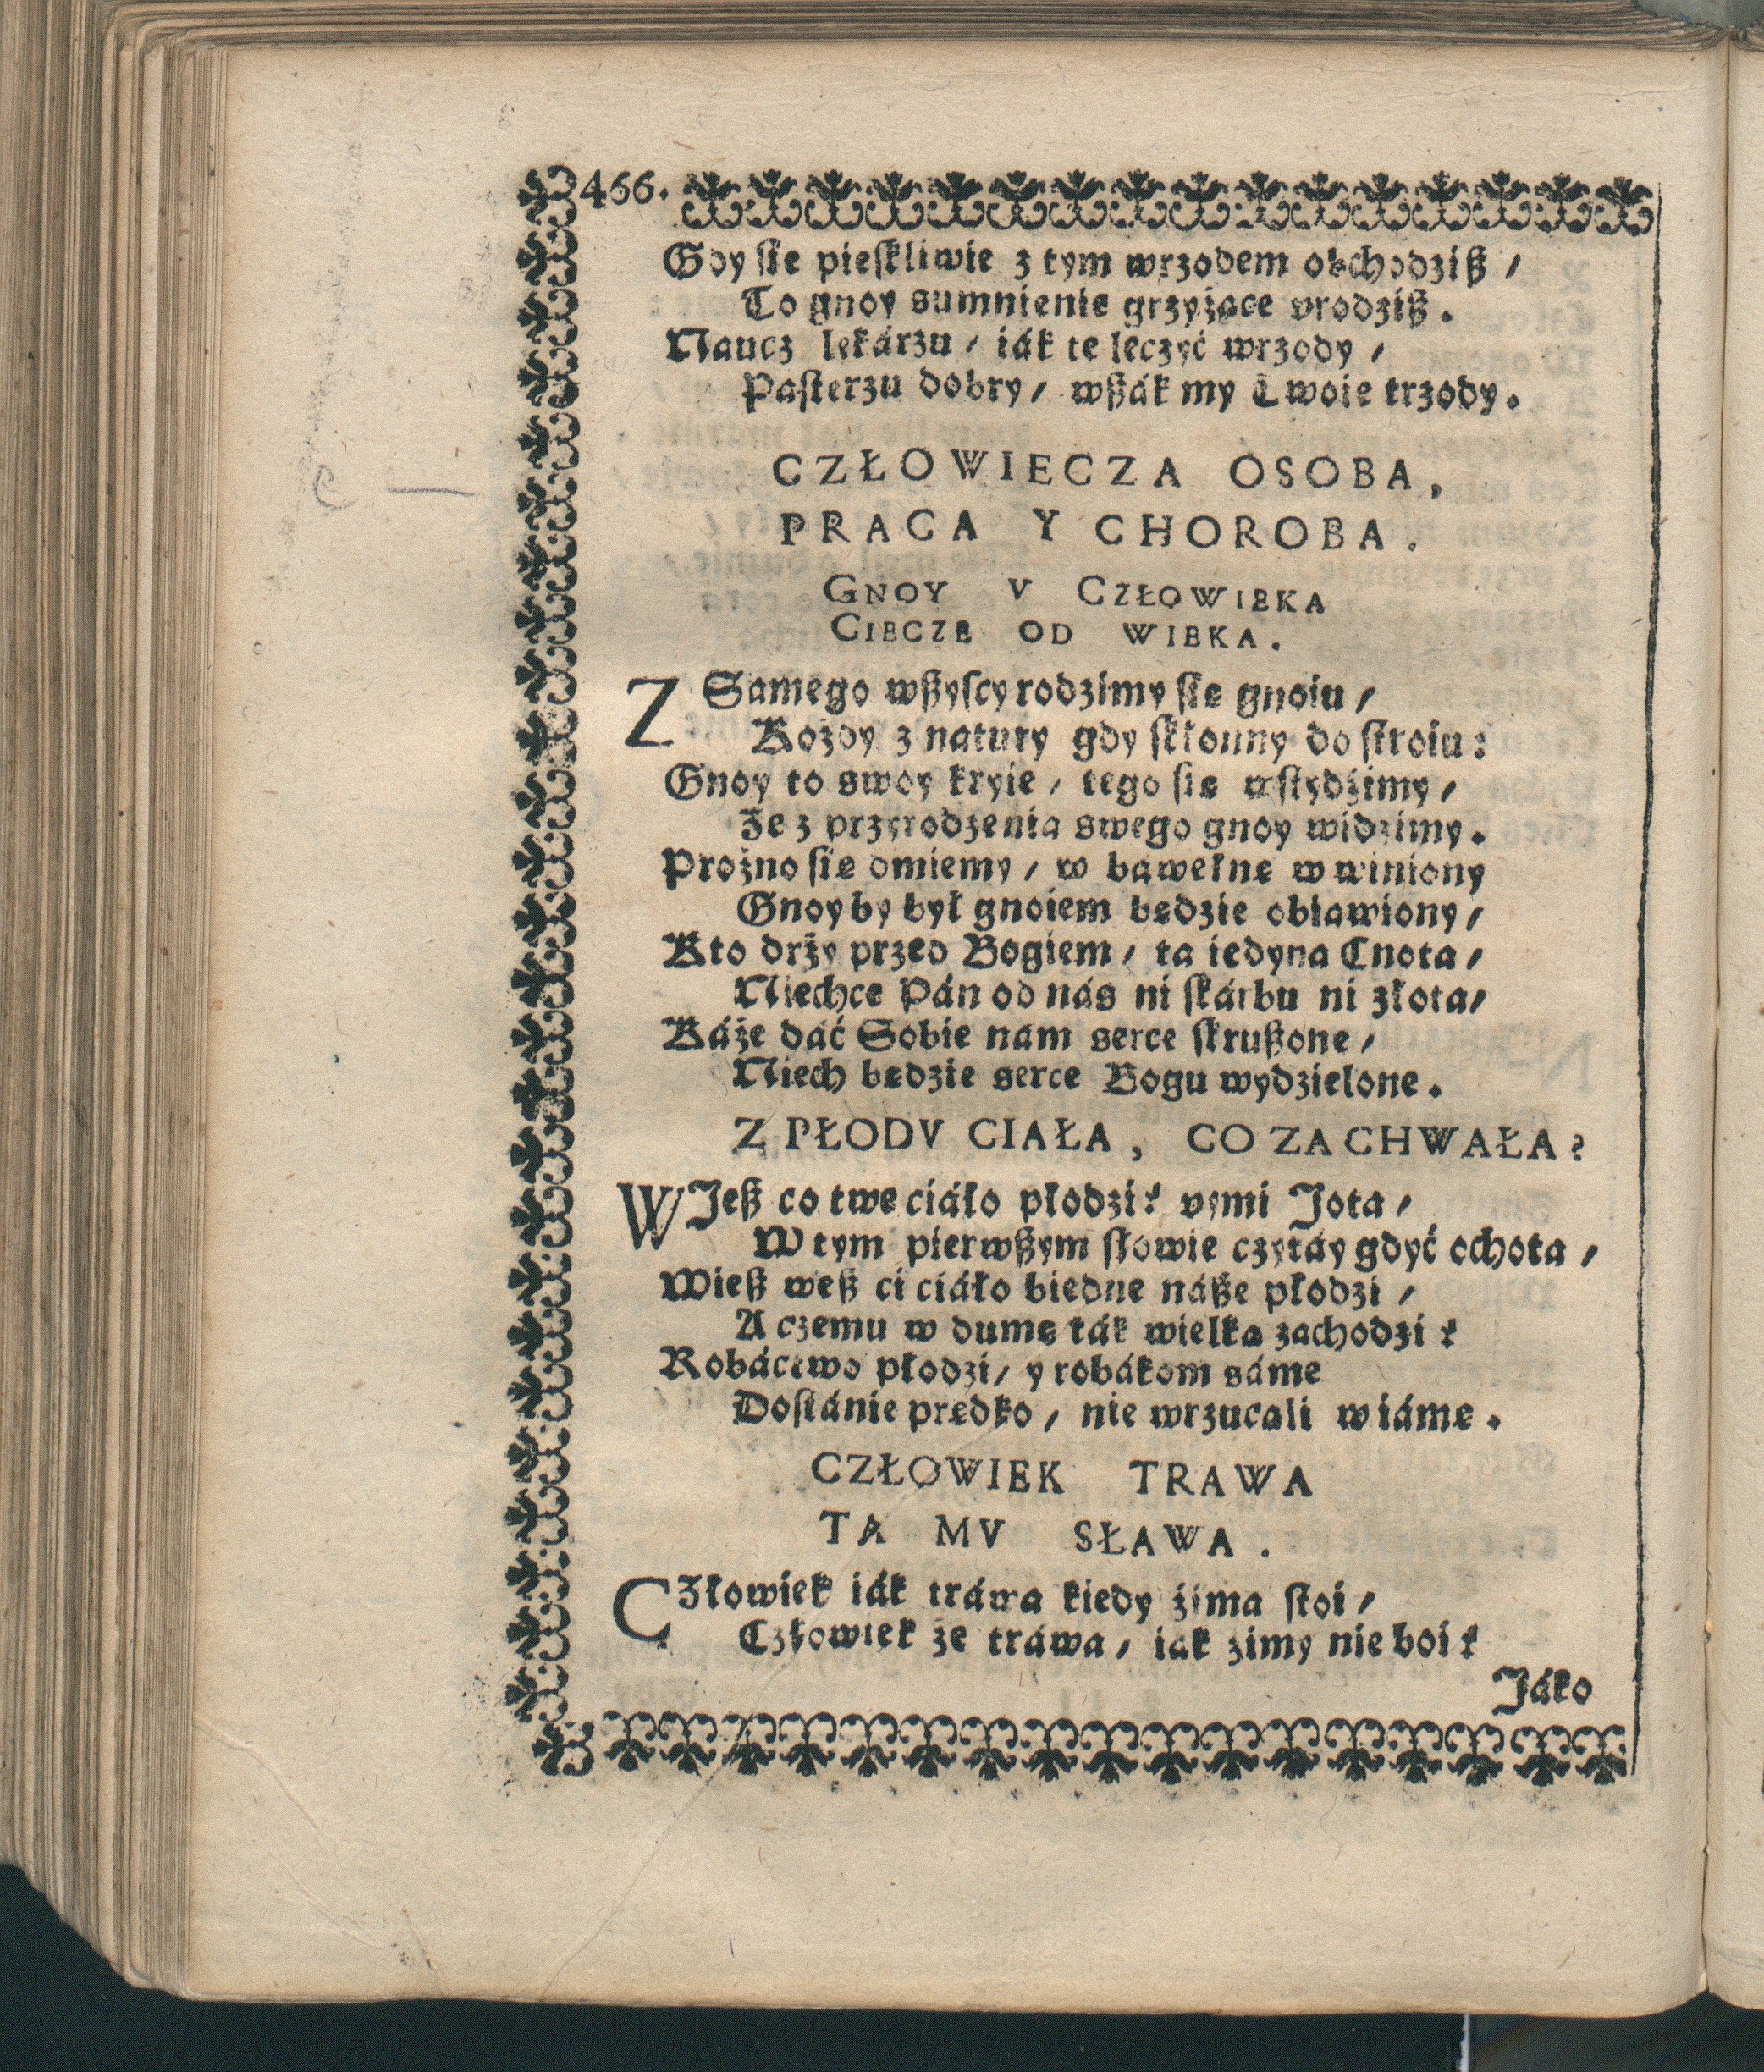 466.
Gdy ſie pieſkliwie z tym wrzodem obchodziß /
To gnoy sumnienie grzyżące vrodziß.
Naucz lekárzu / iák te leczyć wrzody /
Paſterzu dobry / wßák my Twoie trzody.
CZŁOWIECZA OSOBA,
PRACA Y CHOROBA.
GNOY V CZŁOWIEKA
CIECZE OD WIEKA.
Z Samego wßyſcy rodzimy ſie gnoiu /
Kożdy z natury gdy ſkłonny do ſtroiu:
Gnoy to swoy kryie / tego ſię wſtydźimy /
Że z przyrodzenia swego gnoy widzimy.
Prożno ſię omiemy / w bawełnę wwiniony
Gnoy by był gnoiem będzie obiawiony /
Kto drży przed Bogiem / ta iedyna Cnota /
Niechce Pán od nás ni ſkárbu ni złota /
Káże dáć Sobie nam serce ſkrußone /
Niech będzie serce Bogu wydzielone.
Z PŁODV CIAŁA, CO ZA CHWAŁA?
WJeß co twe ciáło płodzi? vymi Jota /
W tym pierwßym ſłowie czytáy gdyć ochota /
Wieß weß ci ciáło biedne náße płodzi /
A czemu w dumę ták wielką zachodzi?
Robáctwo płodzi / y robákom sáme
Doſtánie prędko / nie wrzucali w iámę.
CZŁOWIEK TRAWA
TA MV SŁAWA.
CZłowiek iák tráwa kiedy źima ſtoi /
Człowiek że tráwa / iak zimy nie boi?
Jáko